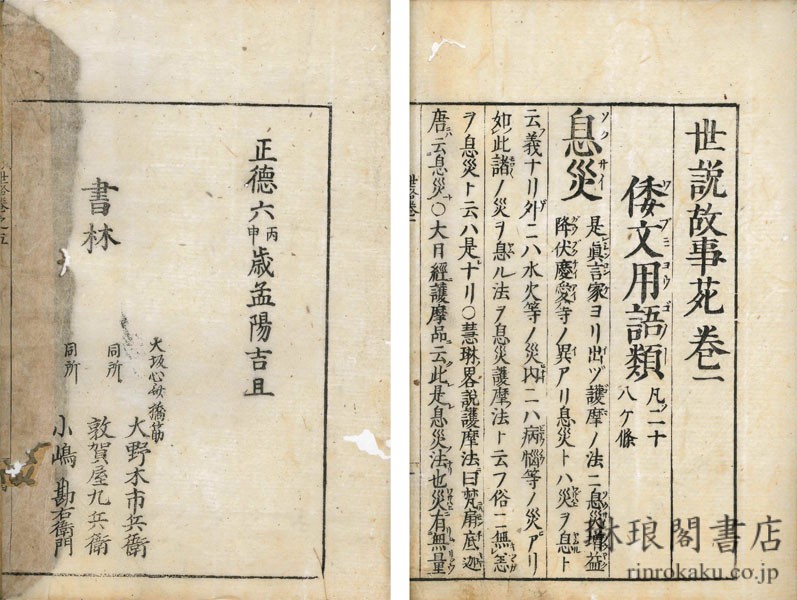 世説故事苑卷一
倭文用語類 凡二十八ケ條
息災 是眞言家ヨリ出ヅ護摩ノ法ニ息災増益
降伏慶愛等ノ異アリ息災トハ災ヲ息ト
云義ナリ外ニハ水火等ノ災内ニハ病惱等ノ災アリ
如此諸ノ災ヲ息ル法ヲ息災護摩法ト云フ俗ニ無恙
ヲ息災ト云ハ是ナリ〇慧琳畧説護摩法曰梵扇底迦
唐云息災〇大日經護摩品云此是息災法也災有無量
正德六丙申歳孟陽吉旦
書林
大坂心斎橋筋 大野木市兵衛
同所 敦賀屋九兵衛
同所 小嶋勘右衛門
琳琅閣書店
rinrokaku.co.jp